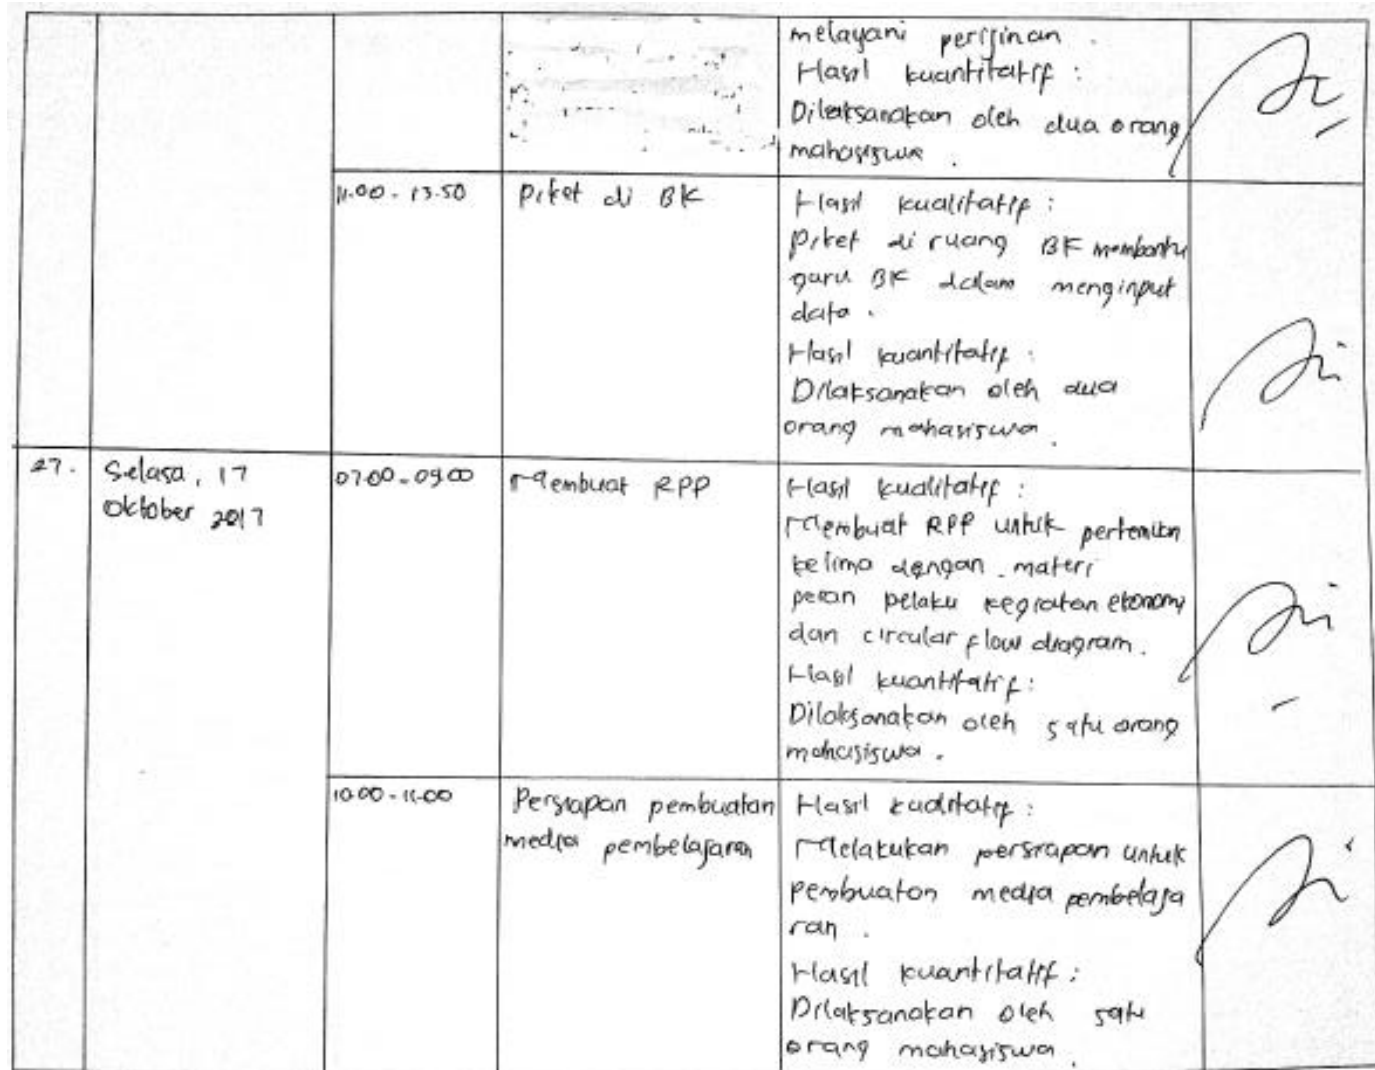 melayani perijinan.
Hasil kuantitatif :
Dilaksanakan oleh dua orang
mahasiswa.
11.00 - 13.50
Piket di BK
Hasil kualitatif :
Piket di ruang BK membantu
guru BK dalam menginput
data.
Hasil kuantitatif :
Dilaksanakan oleh dua
orang mahasiswa.
27.
Selasa, 17
Oktober 2017
07.00 - 09.00
Membuat RPP
Hasil kualitatif :
Membuat RPP untuk pertemuan
kelima dengan materi
peran pelaku kegiatan ekonomi
dan circular flow diagram.
Hasil kuantitatif :
Dilaksanakan oleh satu orang
mahasiswa.
10.00 - 11.00
Persiapan pembuatan
media pembelajaran
Hasil kualitatif :
Melakukan persiapan untuk
pembuatan media pembelaja
ran.
Hasil kuantitatif :
Dilaksanakan oleh satu
orang mahasiswa.